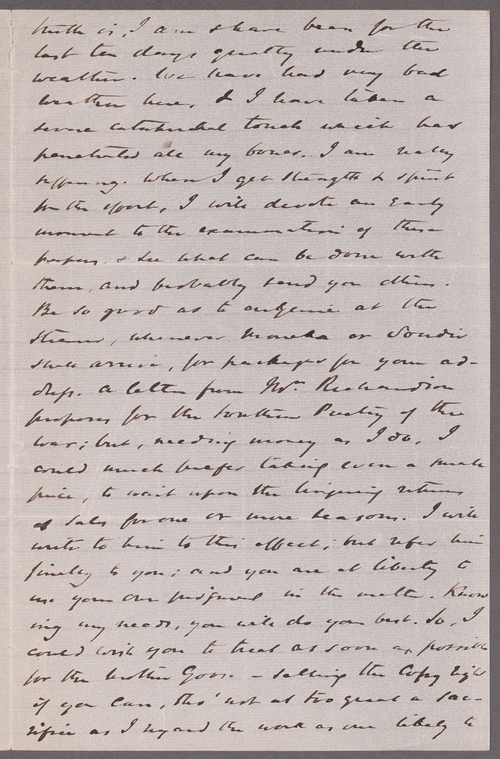 truth is, I am & have been for the
last ten days greatly under the
weather. We have had very bad
weather here, & I have taken a
severe catarrhal touch which has
penetrated all my bones. I am really
suffering. When I get strength & spirit
for the effort, I will devote an early
moment to the examination of these
papers, & see what can be done with
them, and probably send you others.
Be so good as to enquire at the
Steamer, whenever Moneka or Saudis
shall arrive, for packages for your ad-
dress. A letter from Mr. Richardson
proposes for the Southern Poetry of the
war; but, needing money as I do, I
could much prefer taking even a small
price, to wait upon the lingering returns
of Sales for one or more seasons. I will
write to him to this effect; but refer him
finally to you; and you are at liberty to
use your own judgment in the matter. Know
ing my needs, you will do your best. So, I
could wish you to treat as soon as possible
for the Mother Goose – selling the Copy right
if you can, tho' not at too great a sac-
rifice as I regard the work as one likely to